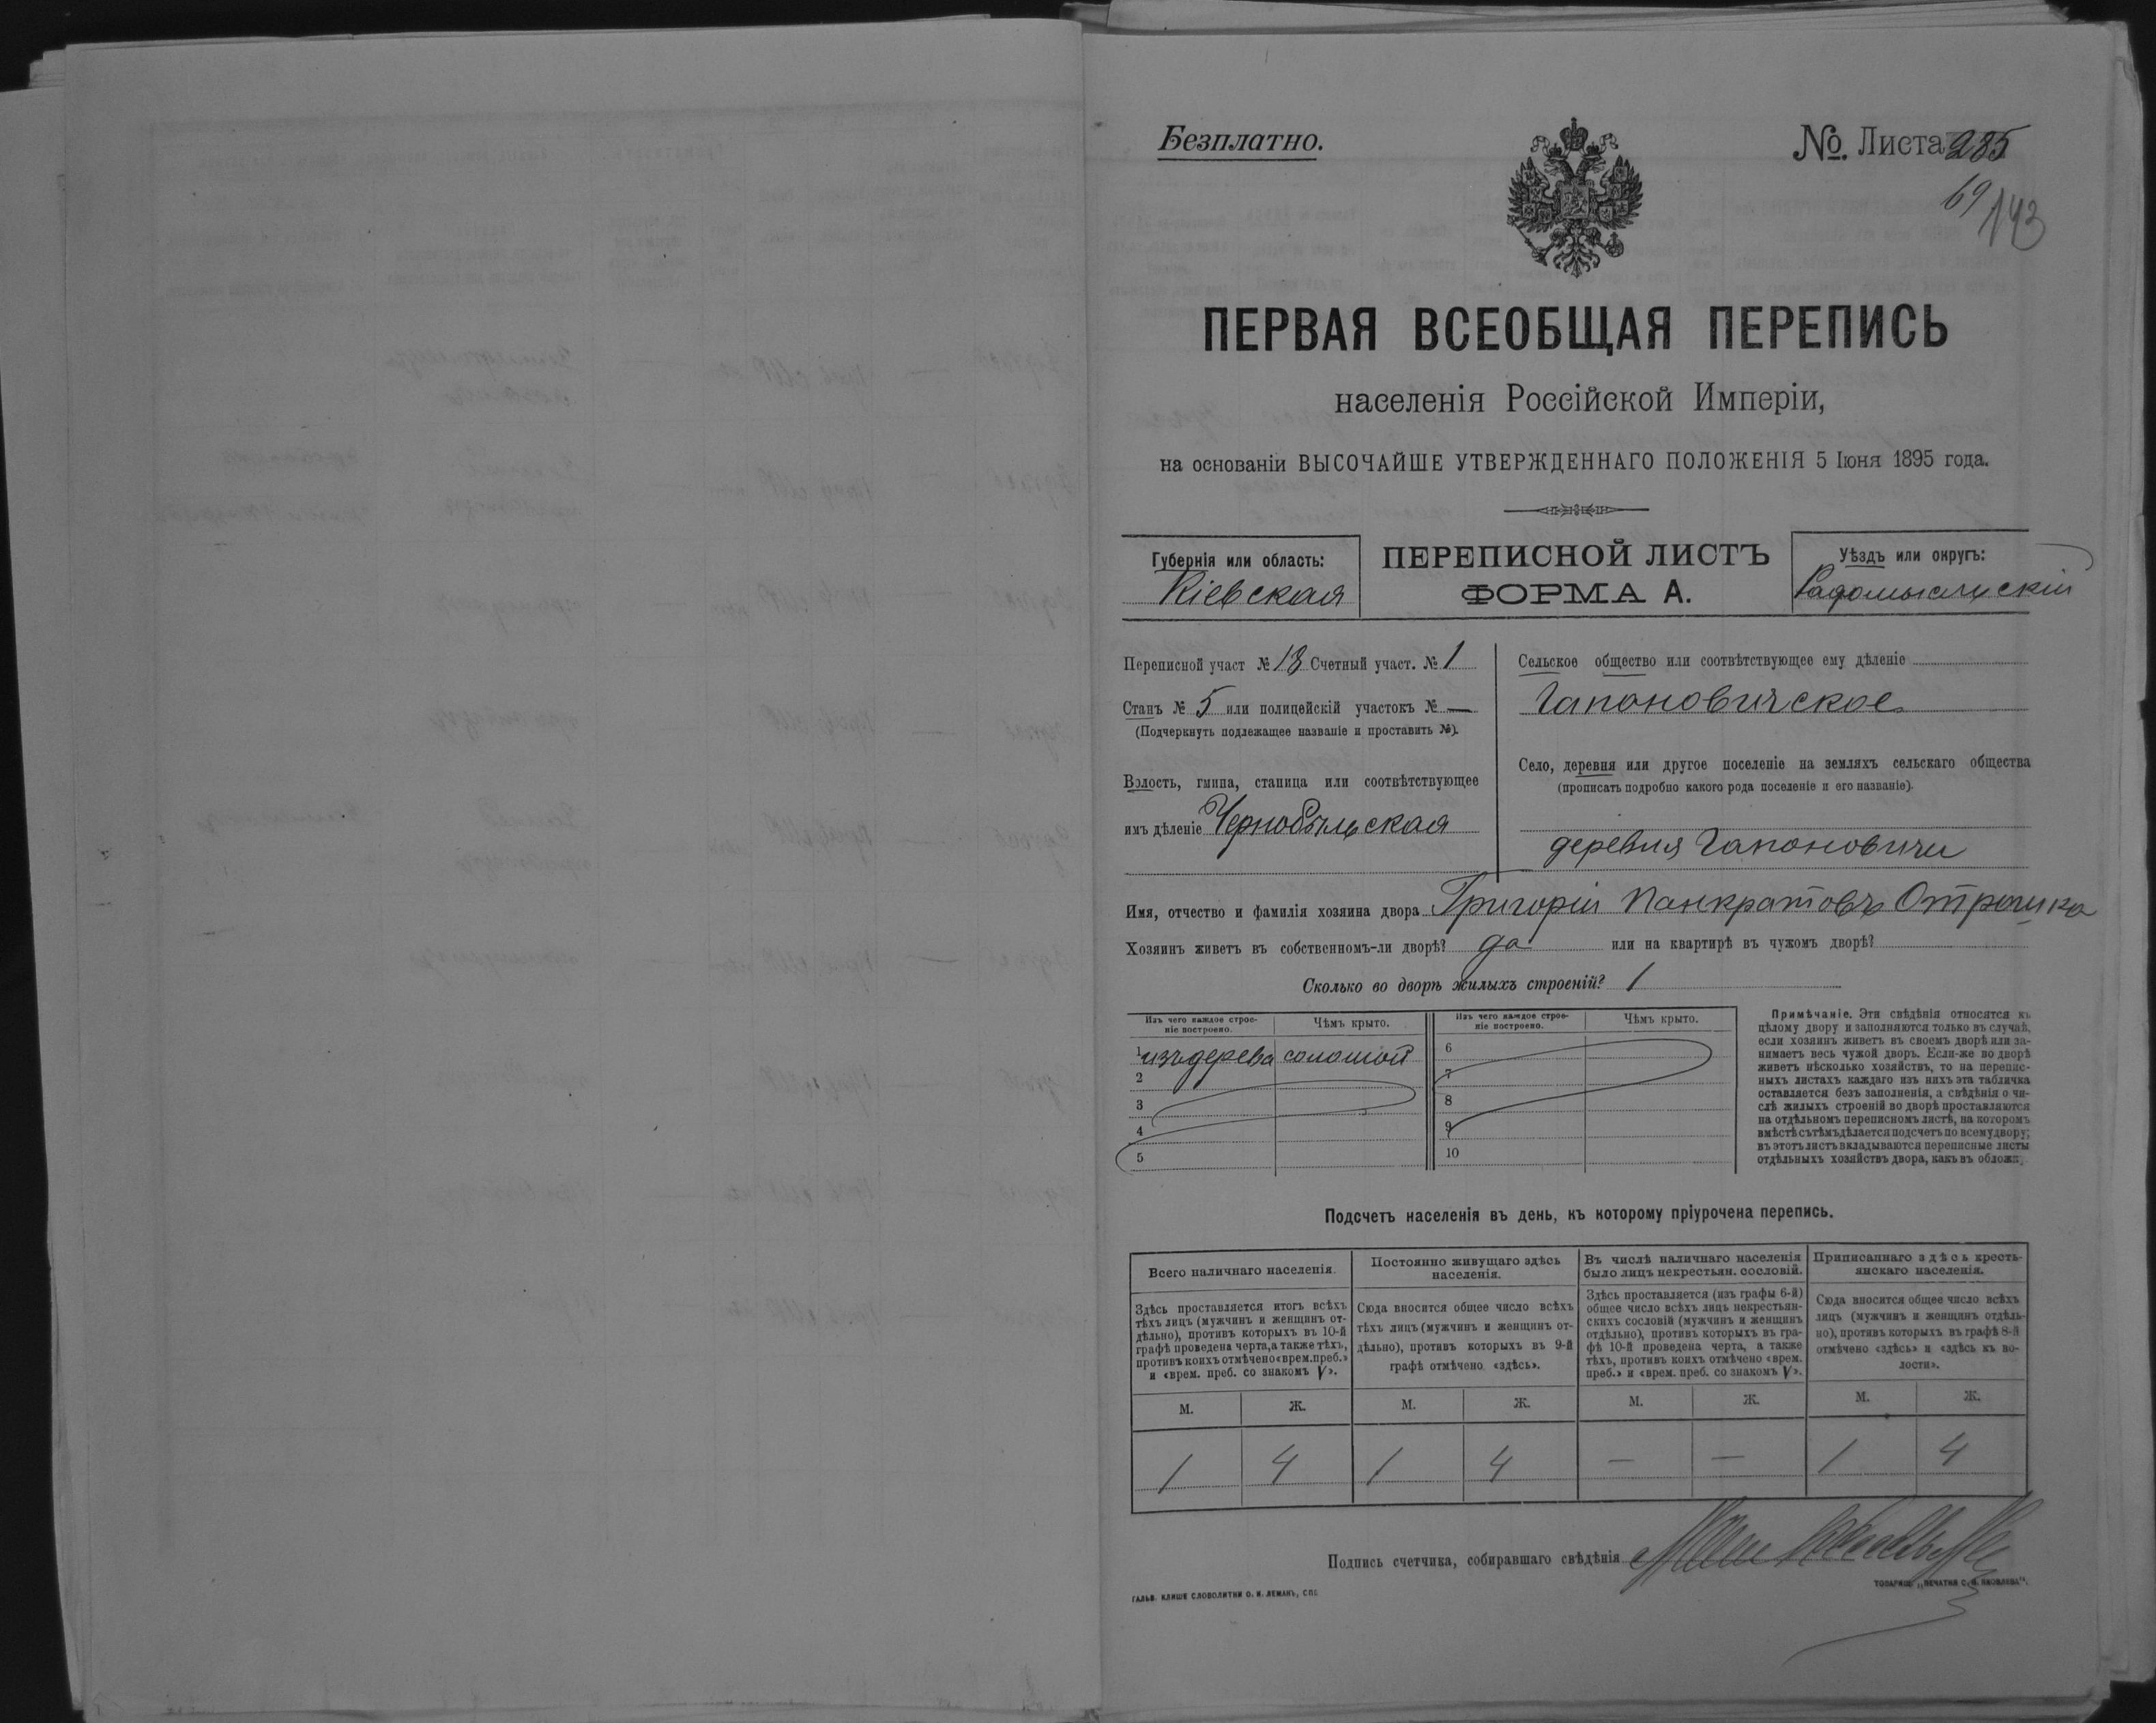 Безплатно.
№. Листа 285
69
143
ПЕРВАЯ ВСЕОБЩАЯ ПЕРЕПИСЬ
населенія Россійской Имперіи,
на основаніи ВЫСОЧАЙШЕ УТВЕРЖДЕННАГО ПОЛОЖЕНІЯ 5 Іюня 1895 года.
Губернія или область:
Кіевская
ПЕРЕПИСНОЙ ЛИСТЪ
ФОРМА А.
Уѣздъ или округъ:
Радомысльскій
Переписной участ № 18 Счетный участ. № 1
Станъ № 5 или полицейскій участокъ № —
(Подчеркнуть подлежащее названіе и проставить №).
Волость, гмина, станица или соотвѣтствующее
имъ дѣленіе Чернобыльская
Сельское общество или соотвѣтствующее ему дѣленіе
Гапоновичское
Село, деревня или другое поселеніе на земляхъ сельскаго общества
(прописать подробно какого рода поселеніе и его названіе).
деревня Гапоновичи
Имя, отчество и фамилія хозяина двора Григорій Панкратовъ
Хозяинъ живетъ въ собственномъ-ли дворѣ? да или на квартирѣ въ чужомъ дворѣ?
Сколько во дворѣ жилыхъ строеній? 1
Изъ чего каждое строе-
ніе построено.
Чѣмъ крыто.
Изъ чего каждое строе-
ніе построено.
Чѣмъ крыто.
1 изъ дерева соломой
2
3
4
5
6
7
8
9
10
Примѣчаніе. Эти свѣдѣнія относятся къ
цѣлому двору и заполняются только въ случаѣ,
если хозяинъ живетъ въ своемъ дворѣ или за-
нимаетъ весь чужой дворъ. Если-же во дворѣ
живетъ нѣсколько хозяйствъ, то на перепис-
ныхъ листахъ каждаго изъ нихъ эта табличка
оставляется безъ заполненія, а свѣдѣнія о чи-
слѣ жилыхъ строеній во дворѣ проставляются
на отдѣльномъ переписномъ листѣ, на которомъ
вмѣстѣ съ тѣмъ дѣлается подсчетъ по всему двору;
въ этотъ листъ вкладываются переписные листы
отдѣльныхъ хозяйствъ двора, какъ въ обложк
Подсчетъ населенія въ день, къ которому пріурочена перепись.
Всего наличнаго населенія.
Здѣсь проставляется итогъ всѣхъ
тѣхъ лицъ (мужчинъ и женщинъ от-
дѣльно), противъ которыхъ въ 10-й
графѣ проведена черта, а также тѣхъ,
противъ коихъ отмѣчено «врем. преб.»
и «врем. преб. со знакомъ V».
Постоянно живущаго здѣсь
населенія.
Сюда вносится общее число всѣхъ
тѣхъ лицъ (мужчинъ и женщинъ от-
дѣльно), противъ которыхъ въ 9-й
графѣ отмѣчено «здѣсь».
Въ числѣ наличнаго населенія
было лицъ некрестьян. сословій.
Здѣсь проставляется (изъ графы 6-й)
общее число всѣхъ лицъ некрестьян-
скихъ сословій (мужчинъ и женщинъ
отдѣльно), противъ которыхъ въ гра-
фѣ 10-й проведена черта, а также
тѣхъ, противъ коихъ отмѣчено «врем.
преб.» и «врем. преб. со знакомъ V».
Приписаннаго здѣсь кресть-
янскаго населенія.
Сюда вносится общее число всѣхъ
лицъ (мужчинъ и женщинъ отдѣль-
но), противъ которыхъ въ графѣ 8-й
отмѣчено «здѣсь» и «здѣсь къ во-
лости».
М. Ж. М. Ж. М. Ж. М. Ж.
1 4 1 4 — — 1 4
Подпись счетчика, собиравшаго свѣдѣнія
ГАЛЬВ. КЛИШЕ СЛОВОЛИТНИ О. И. ЛЕМАНЪ, СПБ
ТОВАРИЩ. „ПЕЧАТНЯ С. П. ЯКОВЛЕВА“.